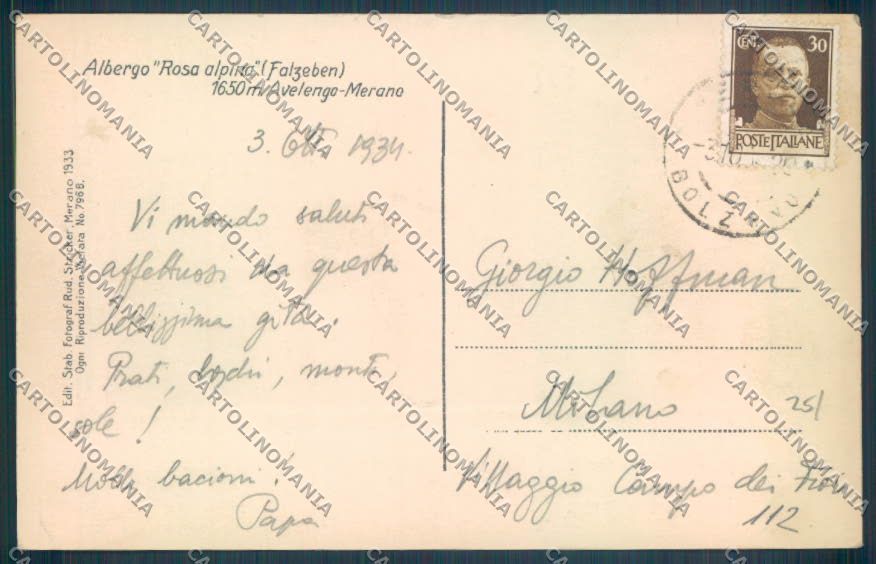 Albergo "Rosa alpina" (Falzeben)
1650 m Avelengo-Merano
3. Ott. 1934.
Vi mando saluti
affettuosi da questa
bellissima gita.
Prati, boschi, monti,
sole!
Molti bacioni!
Papà
Edit. Stab. Fotograf Rud. Stricker, Merano 1933
Ogni Riproduzione Vietata No. 7968.
CENT 30
POSTE ITALIANE
BOLZANO
Giorgio Hoffman
Milano
25/
Villaggio Campo dei Fiori
112
CARTOLINOMANIA